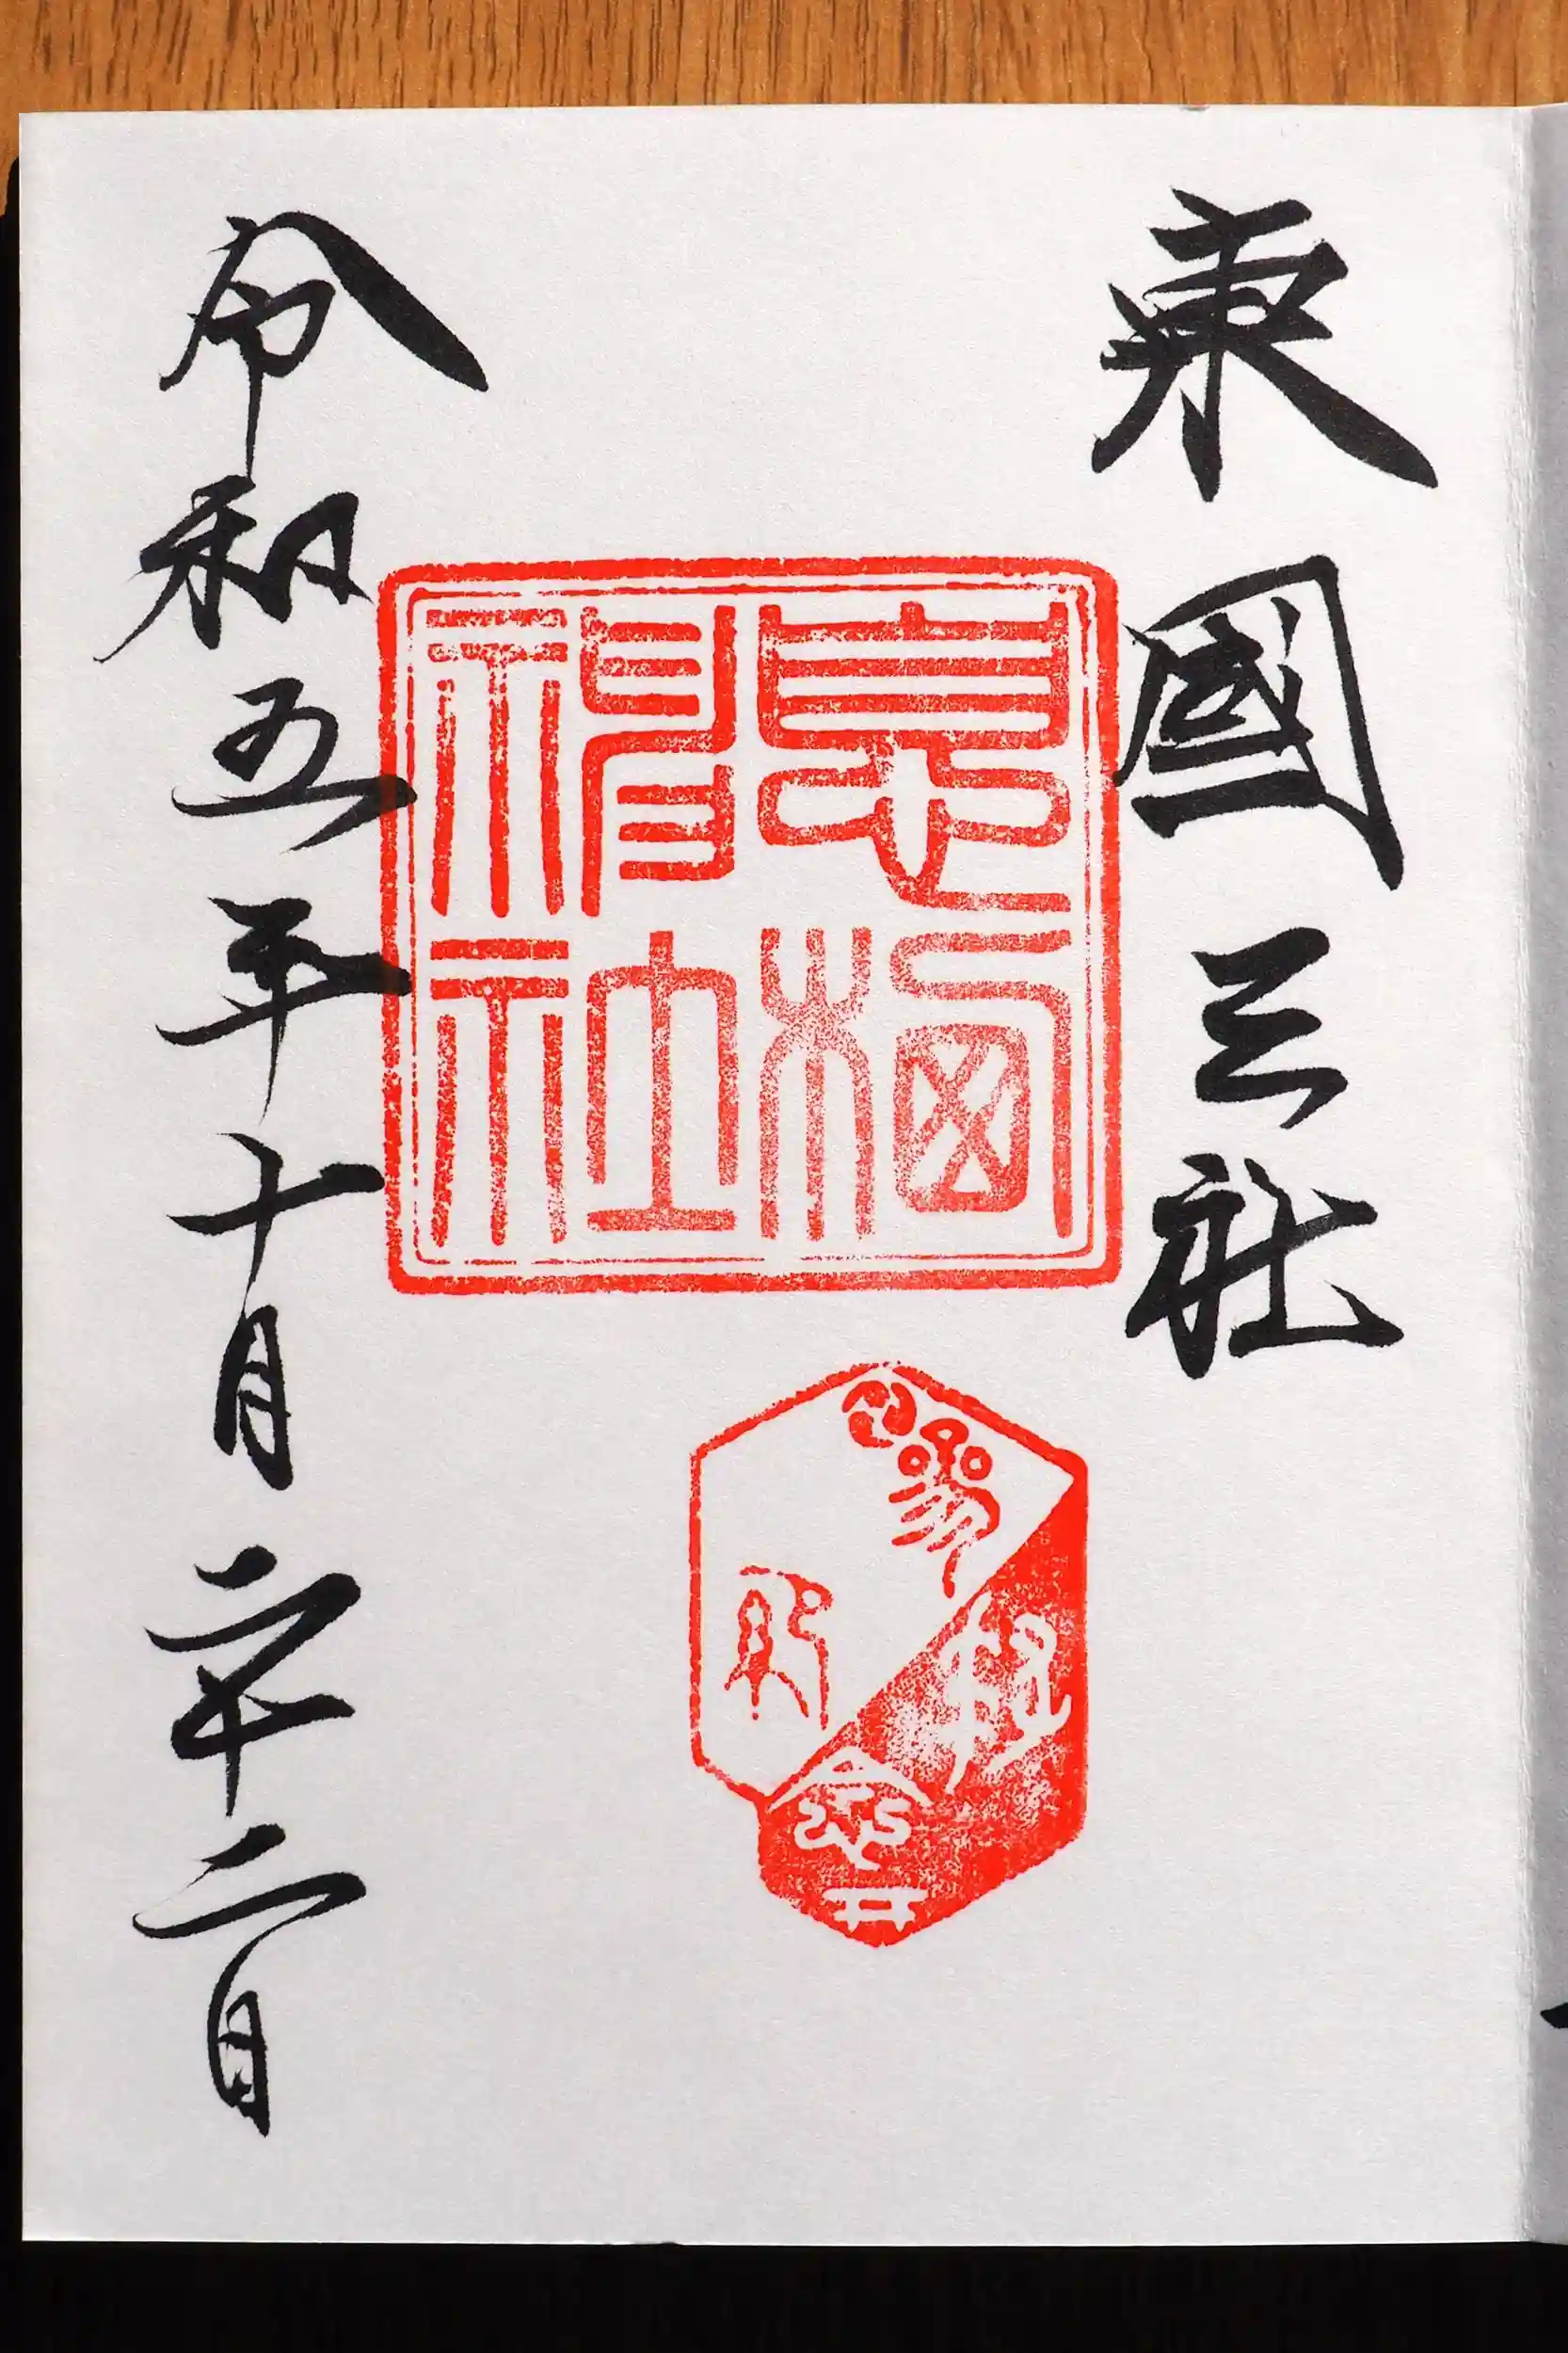 東國三社
息栖神社
令和五年十月二十二日